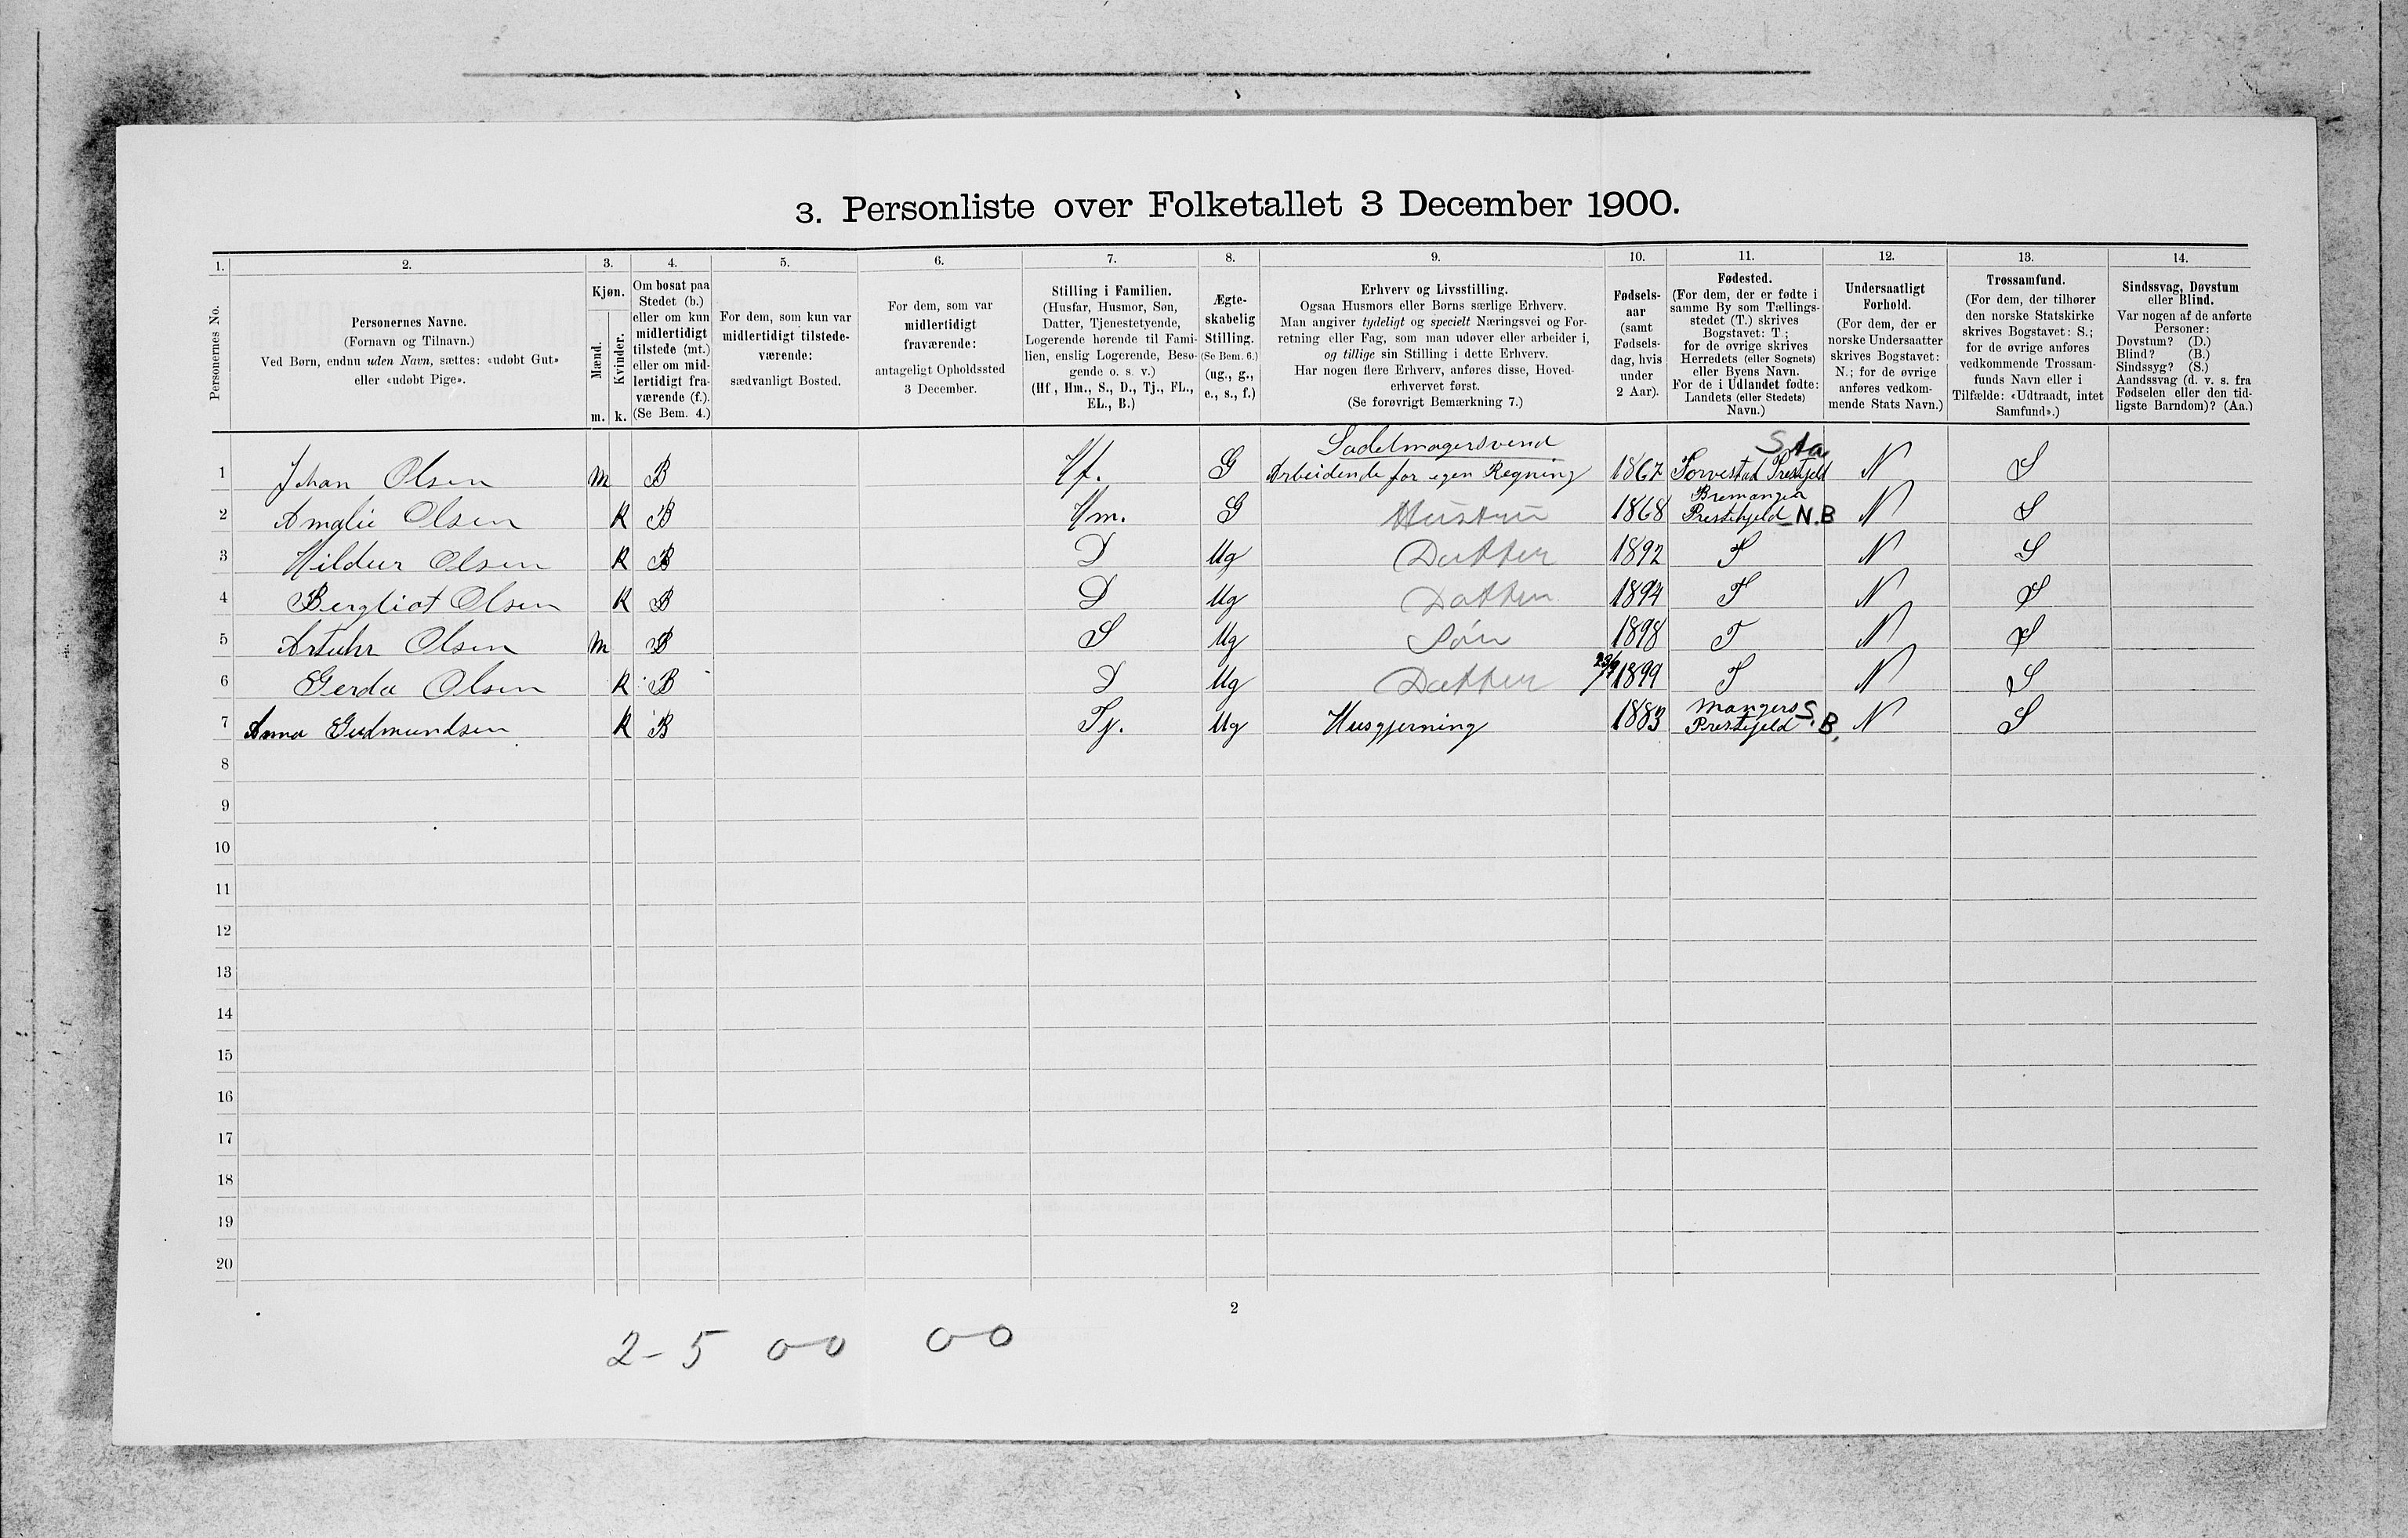 3. Personliste over Folketallet 3 December 1900.
1. 2. 3. 4. 5. 6. 7. 8. 9. 10. 11. 12. 13. 14.
Personernes No.
Personernes Navne.
(Fornavn og Tilnavn.)
Ved Børn, endnu uden Navn, sættes: «udøbt Gut»
eller «udøbt Pige».
Kjøn.
Mænd.
Kvinder.
m. k.
Om bosat paa
Stedet (b.)
eller om kun
midlertidigt
tilstede (mt.)
eller om mid-
lertidigt fra-
værende (f.).
(Se Bem. 4.)
For dem, som kun var
midlertidigt tilstede-
værende:
sædvanligt Bosted.
For dem, som var
midlertidigt
fraværende:
antageligt Opholdssted
3 December.
Stilling i Familien.
(Husfar, Husmor, Søn,
Datter, Tjenestetyende,
Logerende hørende til Fami-
lien, enslig Logerende, Besø-
gende o. s. v.)
(Hf., Hm., S., D., Tj., FL.,
EL., B.)
Ægte-
skabelig
Stilling.
(Se Bem. 6.)
(ug., g.,
e., s., f.)
Erhverv og Livsstilling.
Ogsaa Husmors eller Børns særlige Erhverv.
Man angiver tydeligt og specielt Næringsvei og For-
retning eller Fag, som man udøver eller arbeider i,
og tillige sin Stilling i dette Erhverv.
Har nogen flere Erhverv, anføres disse, Hoved-
erhvervet først.
(Se forøvrigt Bemærkning 7.)
Fødsels-
aar
(samt
Fødsels-
dag, hvis
under
2 Aar).
Fødested.
(For dem, der er fødte i
samme By som Tællings-
stedet (T.) skrives
Bogstavet: T;
for de øvrige skrives
Herredets (eller Sognets)
eller Byens Navn.
For de i Udlandet fødte:
Landets (eller Stedets)
Navn.)
Undersaatligt
Forhold.
(For dem, der er
norske Undersaatter
skrives Bogstavet:
N.; for de øvrige
anføres vedkom-
mende Stats Navn.)
Trossamfund.
(For dem, der tilhører
den norske Statskirke
skrives Bogstavet: S.;
for de øvrige anføres
vedkommende Trossam-
funds Navn eller i
Tilfælde: «Udtraadt, intet
Samfund».)
Sindssvag, Døvstum
eller Blind.
Var nogen af de anførte
Personer:
Døvstum? (D.)
Blind? (B.)
Sindssyg? (S.)
Aandssvag (d. v. s. fra
Fødselen eller den tid-
ligste Barndom)? (Aa.)
Sadelmagersvend Sta
1 Johan Olsen m B Hf. G Arbeidende for egen Regning 1867 Torvestad Prestgjeld N S
Bremanger
2 Amalie Olsen K B Hm. G Hustru 1868 Prestehjeld N.B N S
3 Hildur Olsen K B D Ug Datter 1892 T N S
4 Bergliot Olsen K B D Ug Datter 1894 T N S
5 Artuhr Olsen m B S Ug Søn 1898 T N S
6 Gerda Olsen K B D Ug Datter 23/9 1899 T N S
Mangers S.
7 Anna Gudmundsen K B Tj. Ug Husgjerning 1883 Prestejeld B. N S
8
9
10
11
12
13
14
15
16
17
18
19
20
2
2-5 0-0 0-0